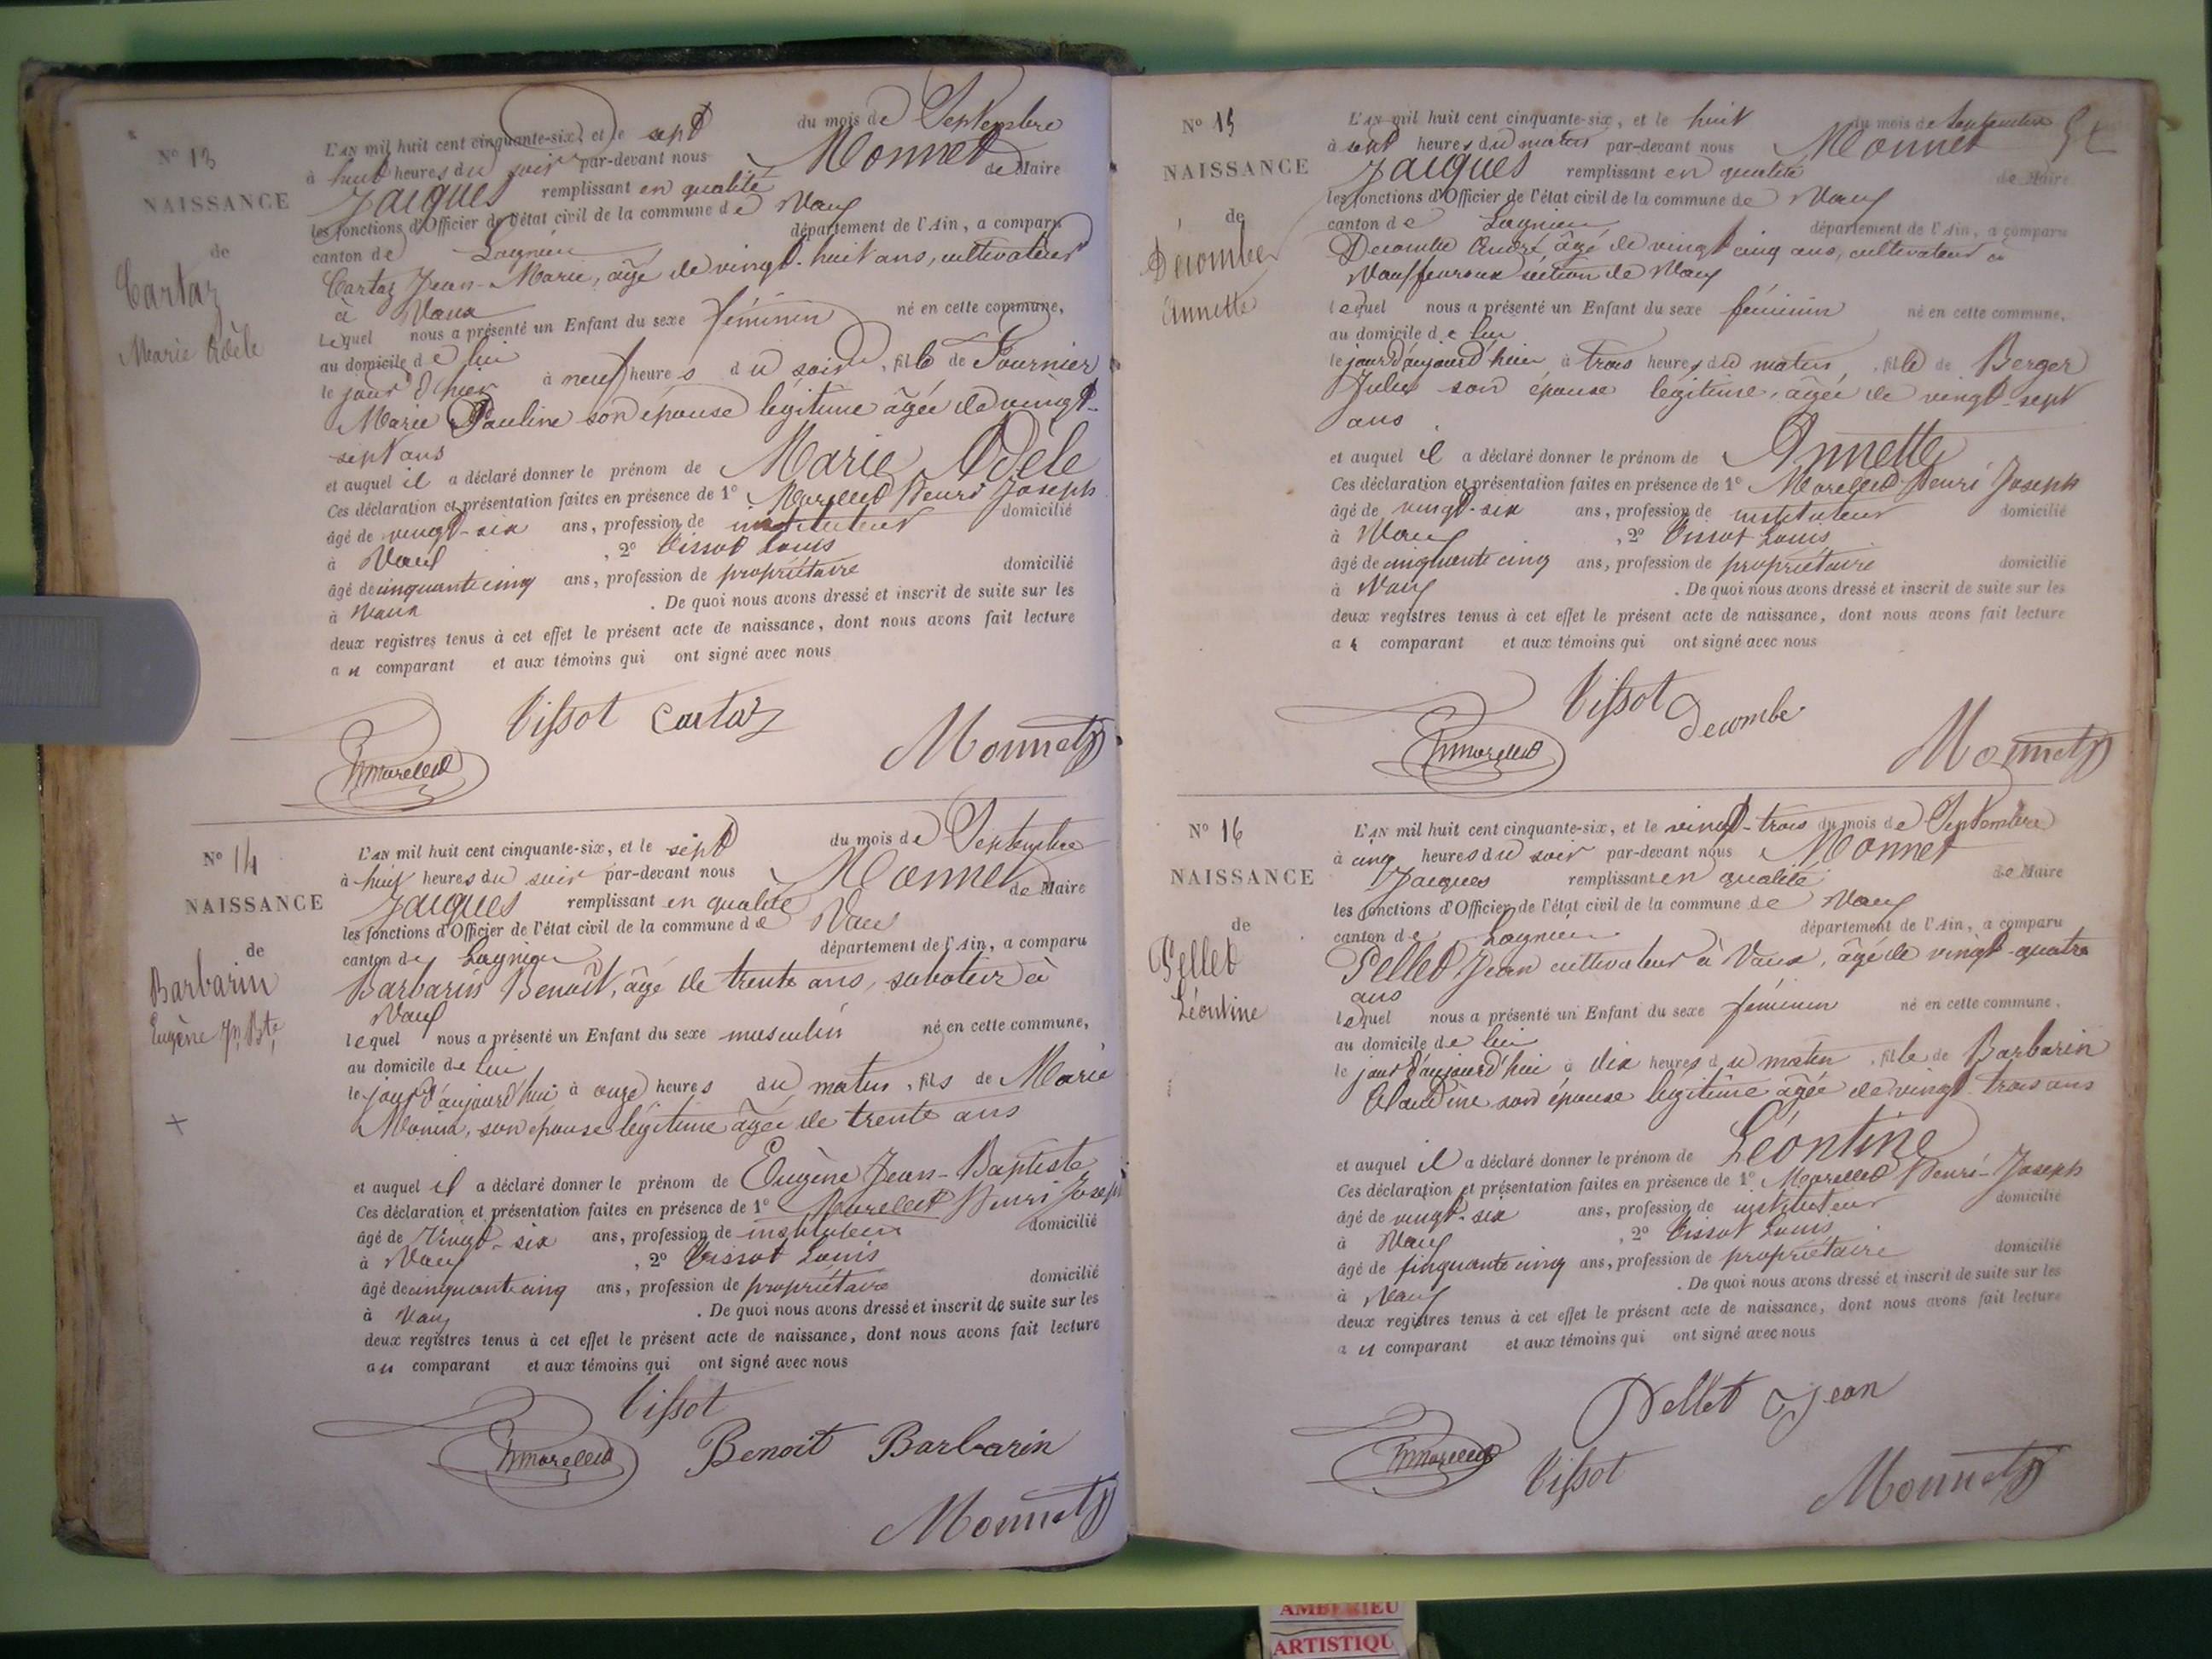 N° 13
NAISSANCE
de
Cartaz
Marie Adèle
L'AN mil huit cent cinquante-six, et le sept du mois de Septembre
à huit heures du soir par-devant nous Monnet
Jacques remplissant en qualité de Maire
les fonctions d'Officier de l'état civil de la commune de Vaux
canton de Lagnieu département de l'Ain, a comparu
Cartaz Jean-Marie, âgé de vingt-huit ans, cultivateur
à Vaux
lequel nous a présenté un Enfant du sexe féminin né en cette commune,
au domicile de lui
le jour d'hier à neuf heures du soir, fille de Fournier
Marie Pauline son épouse légitime âgée de vingt-
sept ans
et auquel il a déclaré donner le prénom de Marie Adèle
Ces déclaration et présentation faites en présence de 1° Morellet Henri Joseph
âgé de vingt-six ans, profession de instituteur domicilié
à Vaux, 2° Tissot Louis
âgé de cinquante cinq ans, profession de propriétaire domicilié
à Vaux. De quoi nous avons dressé et inscrit de suite sur les
deux registres tenus à cet effet le présent acte de naissance, dont nous avons fait lecture
au comparant et aux témoins qui ont signé avec nous
Tissot Cartaz
Hmorellet Monnet
N° 14
NAISSANCE
de
Barbarin
Eugène Jn Bte
+
L'AN mil huit cent cinquante-six, et le sept du mois de Septembre
à huit heures du soir par-devant nous Monnet
Jacques remplissant en qualité de Maire
les fonctions d'Officier de l'état civil de la commune de Vaux
canton de Lagnieu département de l'Ain, a comparu
Barbarin Benoît, âgé de trente ans, sabotier à
Vaux
lequel nous a présenté un Enfant du sexe masculin né en cette commune,
au domicile de lui
le jour d'aujourd'hui à onze heures du matin, fils de Marie
Monin, son épouse légitime âgée de trente ans
et auquel il a déclaré donner le prénom de Eugène Jean-Baptiste
Ces déclaration et présentation faites en présence de 1° Morellet Henri Joseph
âgé de Vingt-six ans, profession de instituteur domicilié
à Vaux, 2° Tissot Louis
âgé de cinquante cinq ans, profession de propriétaire domicilié
à Vaux. De quoi nous avons dressé et inscrit de suite sur les
deux registres tenus à cet effet le présent acte de naissance, dont nous avons fait lecture
au comparant et aux témoins qui ont signé avec nous
Tissot
Hmorellet Benoit Barbarin
Monnet
N° 15
NAISSANCE
de
Décombe
Annette
L'AN mil huit cent cinquante-six, et le huit du mois de Septembre
à sept heures du matin par-devant nous Monnet
Jacques remplissant en qualité de Maire
les fonctions d'Officier de l'état civil de la commune de Vaux
canton de Lagnieu département de l'Ain, a comparu
Decombe André, âgé de vingt cinq ans, cultivateur à
Vauxfevroux section de Vaux
lequel nous a présenté un Enfant du sexe féminin né en cette commune,
au domicile de lui
le jour d'aujourd'hui à trois heures du matin, fille de Berger
Julie son épouse légitime, âgée de vingt-sept
ans
et auquel il a déclaré donner le prénom de Annette
Ces déclaration et présentation faites en présence de 1° Morellet Henri Joseph
âgé de vingt-six ans, profession de instituteur domicilié
à Vaux, 2° Tissot Louis
âgé de cinquante cinq ans, profession de propriétaire domicilié
à Vaux. De quoi nous avons dressé et inscrit de suite sur les
deux registres tenus à cet effet le présent acte de naissance, dont nous avons fait lecture
au comparant et aux témoins qui ont signé avec nous
Tissot Decombe
Hmorellet Monnet
N° 16
NAISSANCE
de
Pellet
Léontine
L'AN mil huit cent cinquante-six, et le vingt-trois du mois de Septembre
à cinq heures du soir par-devant nous Monnet
Jacques remplissant en qualité de Maire
les fonctions d'Officier de l'état civil de la commune de Vaux
canton de Lagnieu département de l'Ain, a comparu
Pellet Jean cultivateur à Vaux, âgé de vingt-quatre
ans
lequel nous a présenté un Enfant du sexe féminin né en cette commune,
au domicile de lui
le jour d'aujourd'hui à dix heures du matin, fille de Barbarin
Claudine son épouse légitime âgée de vingt trois ans
et auquel il a déclaré donner le prénom de Léontine
Ces déclaration et présentation faites en présence de 1° Morellet Henri-Joseph
âgé de vingt-six ans, profession de instituteur domicilié
à Vaux, 2° Tissot Louis
âgé de cinquante cinq ans, profession de propriétaire domicilié
à Vaux. De quoi nous avons dressé et inscrit de suite sur les
deux registres tenus à cet effet le présent acte de naissance, dont nous avons fait lecture
au comparant et aux témoins qui ont signé avec nous
Pellet Jean
Hmorellet Tissot Monnet
AMBERIEU
ARTISTIQU